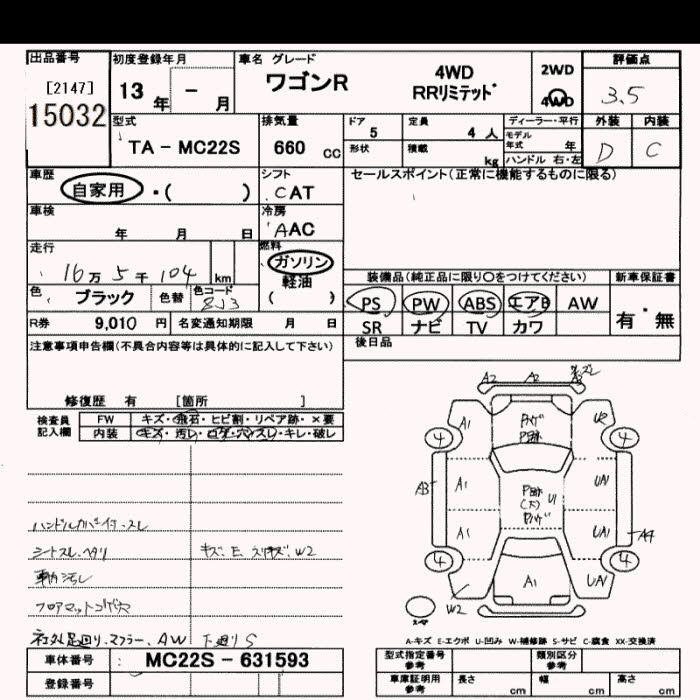 出品番号 初度登録年月 車名 グレード 評価点
[2147] 13 年 - 月 ワゴンR 4WD 2WD 3.5
15032 RRリミテッド 4WD
型式 排気量 ドア 5 定員 4 人 ディーラー・平行 外装 内装
TA - MC22S 660 cc 形状 積載 kg モデル年式 年 D C
ハンドル 右・左
車歴 シフト セールスポイント(正常に機能するものに限る)
自家用 ・( ) CAT
車検 冷房
年 月 日 AAC
走行 燃料
16万 5千 104 km ガソリン 装備品(純正品に限り○をつけてください) 新車保証書
色 ブラック 色替 色コード ZJ3 軽油 PS PW ABS エアB AW 有・無
( ) SR ナビ TV カワ
R券 9,010 円 名変通知期限 月 日
注意事項申告欄(不具合内容等は具体的に記入して下さい) 後日品
修復歴 有 [箇所 ]
検査員記入欄 FW キズ・飛石・ヒビ割・リペア跡・×要
内装 キズ・汚レ・コゲ・穴・スレ・キレ・破レ
A2 A2 A3
A1 U2
4 4
A3 A1 U1 UA1
A1 UA1 A4
4 4
A1 UA1
W2
ハンドルカバー付、スレ
シートスレ、ヘタリ キズ、E、スリキズ、W2
車内汚レ
フロアマットコゲ穴
社外足廻り、マフラー、AW 下廻りS
A-キズ E-エクボ U-凹み W-補修跡 S-サビ C-腐食 XX-交換済
車体番号 MC22S - 631593 型式指定番号 参考 類別区分 参考
登録番号 車庫証明用 参考 長さ cm 幅 cm 高さ cm